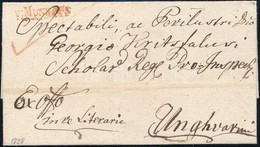 v. MUNKACS
Spectabili, ac Perillustri Dno
Georgio Kritsfalusi
Scholar. Reg.
Ex offo
in re Literaria
Unghvarini
1828